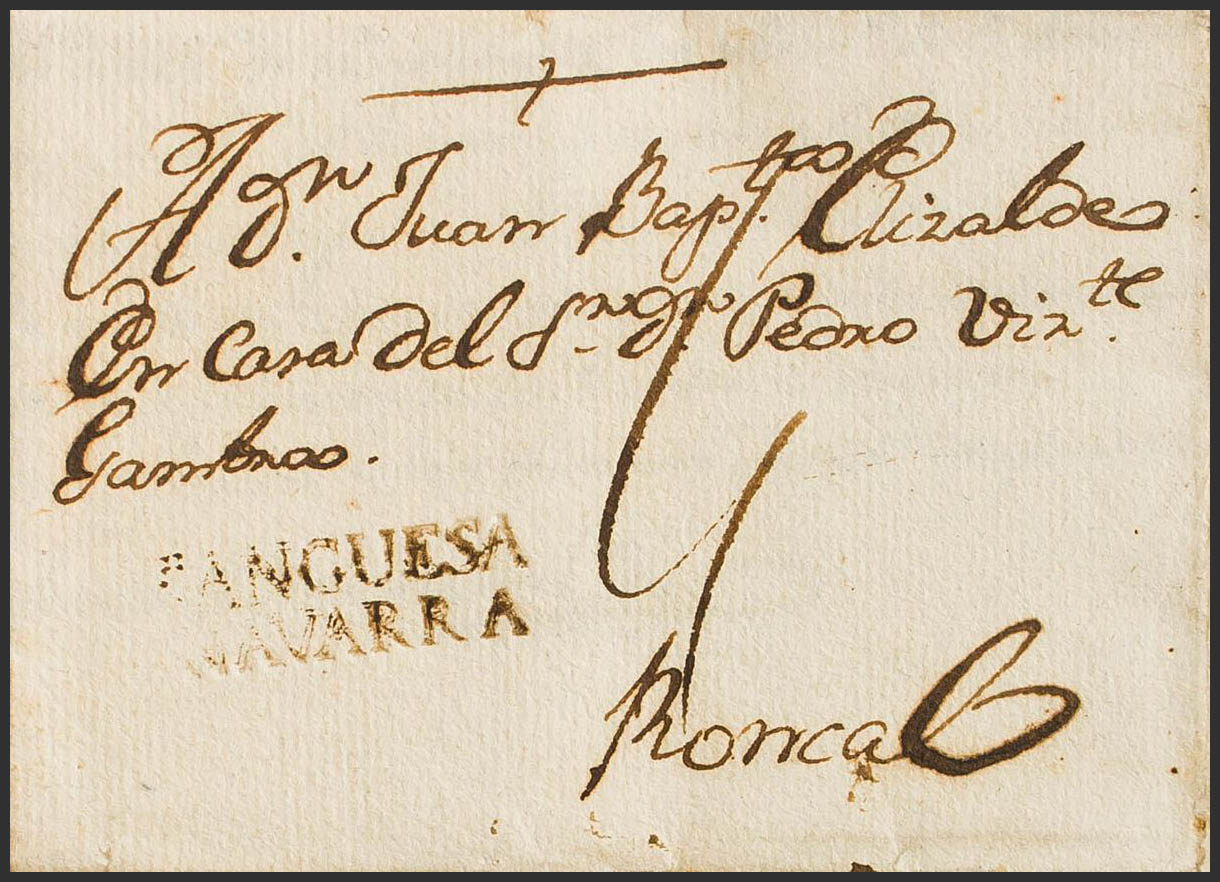 A Dn. Juan Bapta. Elizalde
En Casa del Sr. Dn. Pedro Vizte.
Gambra.
SANGUESA
NAVARRA
4
Roncal